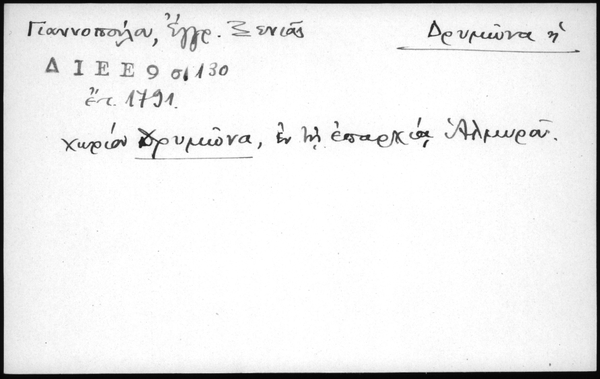 Γιαννοπούλου, Ἔγγρ. Ξενιᾶς
Δρυμῶνα ἡ
Δ Ι Ε Ε 9 σ. 130
ἔτ. 1791.
χωρίον Δρυμῶνα, ἐν τῇ ἐπαρχίᾳ Ἁλμυροῦ.